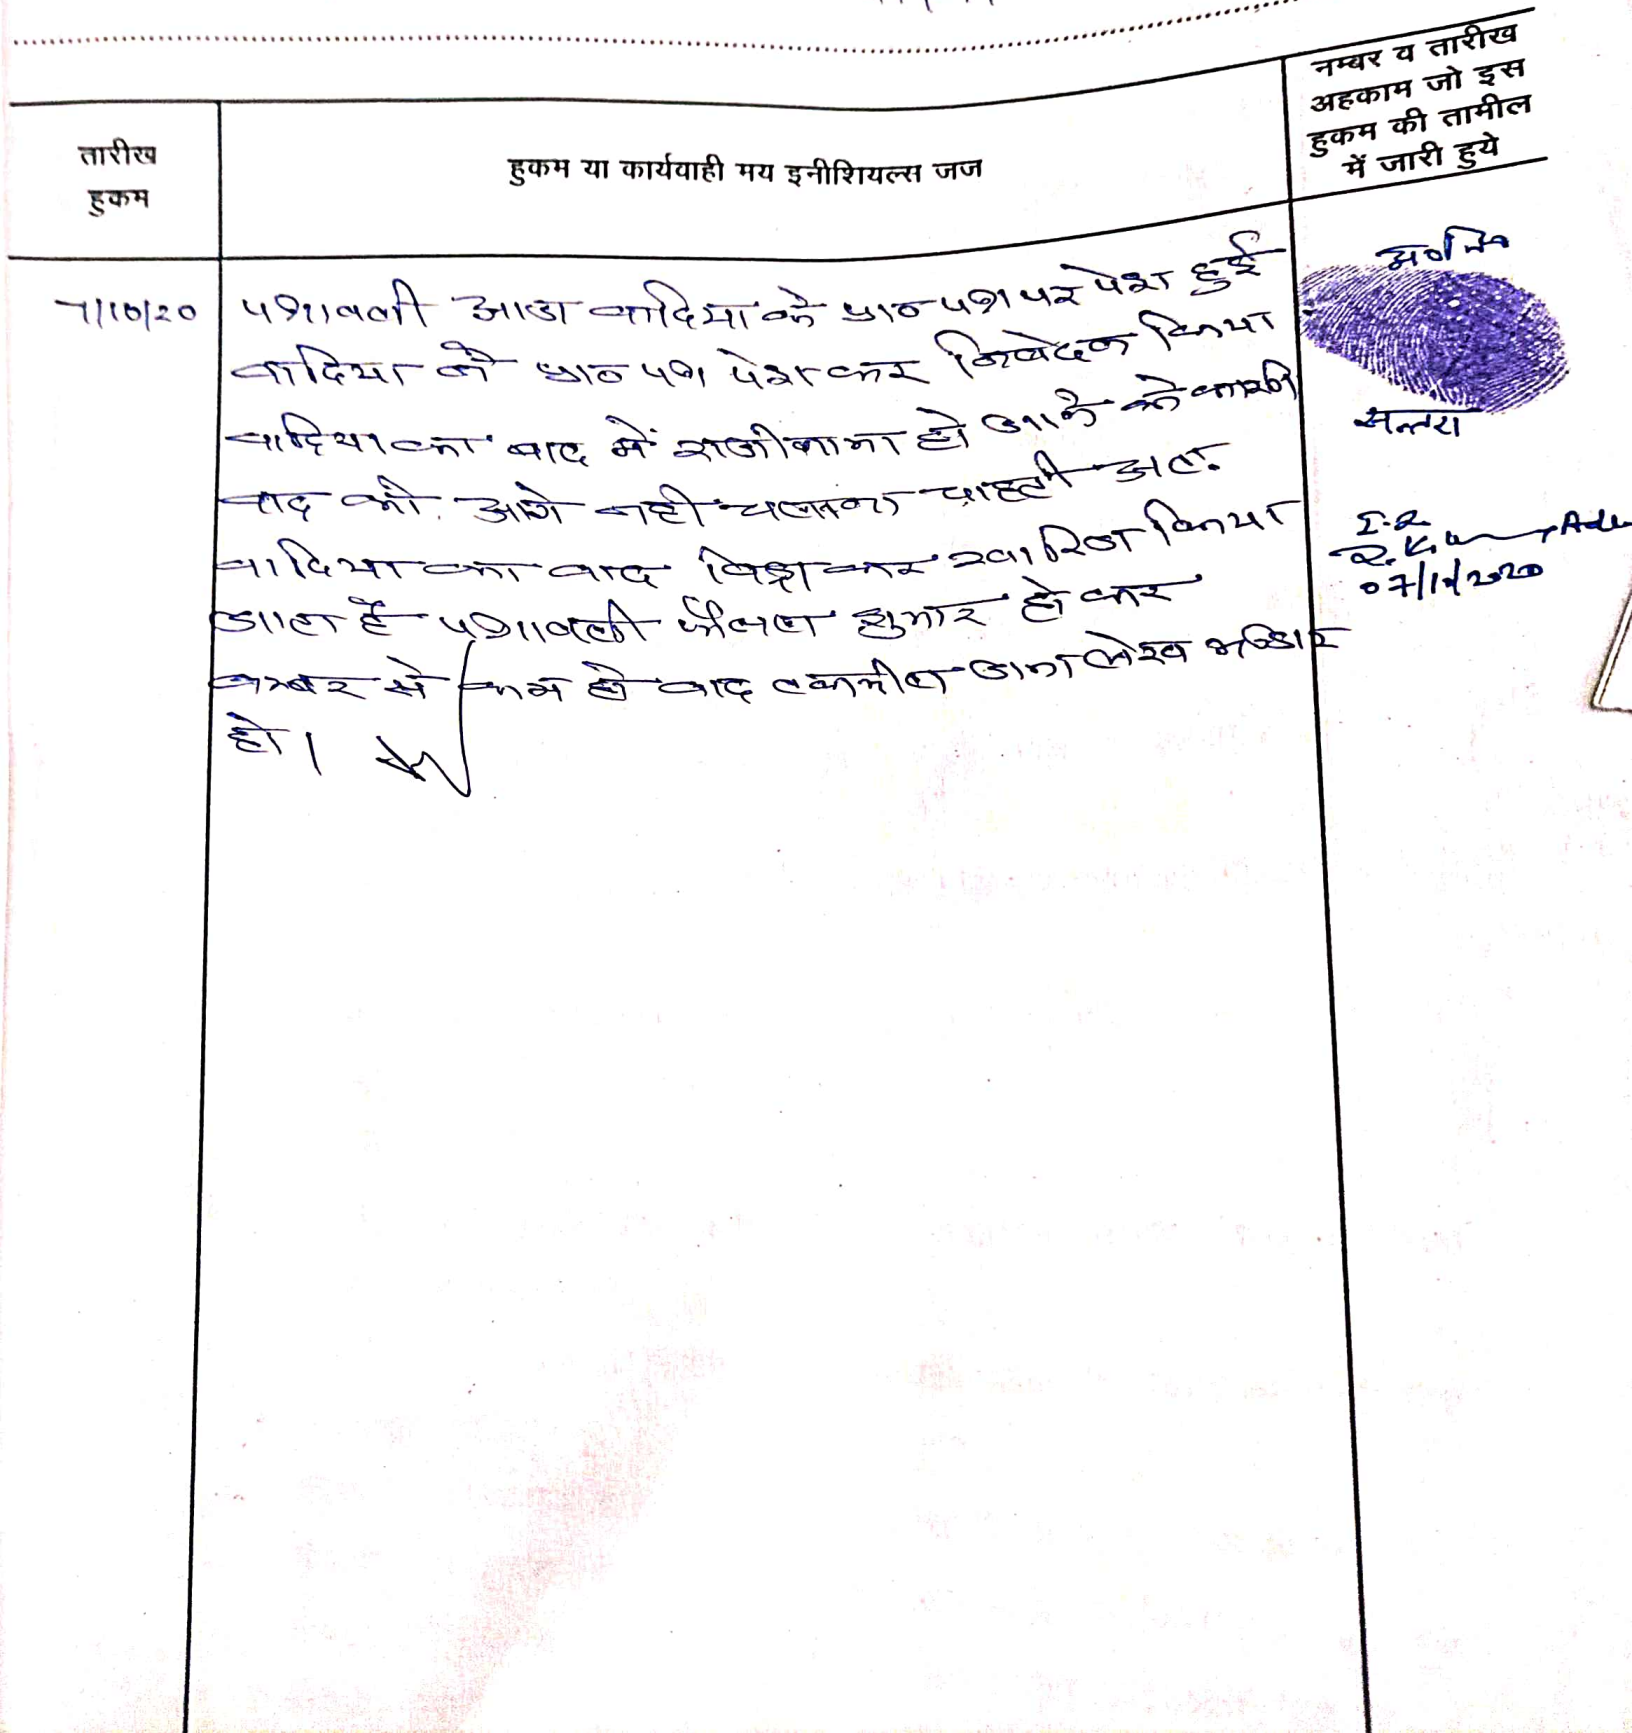 तारीख
हुकम
हुकम या कार्यवाही मय इनीशियल्स जज
नम्बर व तारीख
अहकाम जो इस
हुकम की तामील
में जारी हुये
7/10/20
पत्रावली आज वादिया के प्रा० पत्र पर पेश हुई
वादिया ने प्रा० पत्र पेश कर निवेदन किया
वादिया का वाद में राजीनामा हो जाने के कारण
वाद को आगे नही चलाना चाहती अतः
वादिया का वाद विड्रा कर खारिज किया
जाता है पत्रावली फैसल शुमार हो कर
नम्बर से कम हो वाद तकमील जमा लेख भण्डार
हो।
अ०नि०
सन्तरा
07/10/2020